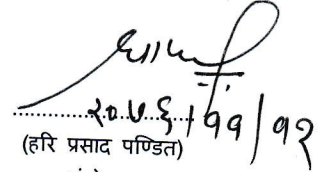 २०७६।११।१२
(हरि प्रसाद पण्डित)